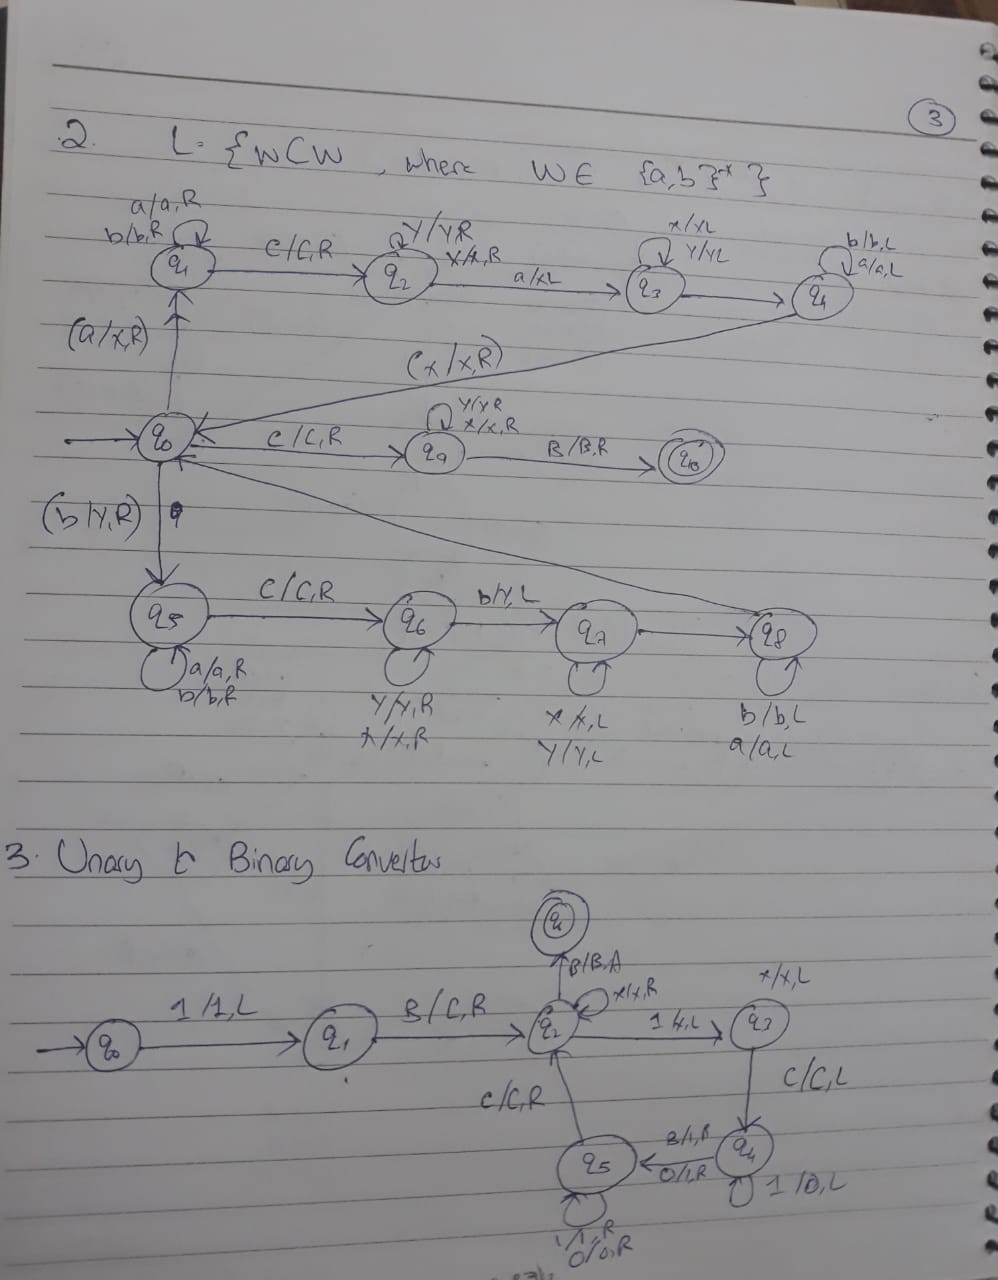 3
2. L = {WCW, where W ∈ {a,b}* }
a/a,R
b/b,R
q1
C/C,R
Y/Y R
X/X,R
q2
a/x L
x/x L
Y/Y L
q3
b/b,L
a/a,L
q4
(a/x,R)
(x/x,R)
q0
C/C,R
Y/Y R
X/X,R
q9
B/B,R
q10
(b/Y,R)
q5
C/C,R
q6
b/Y,L
q7
q8
a/a,R
b/b,R
Y/Y,R
X/X,R
x/x,L
Y/Y,L
b/b,L
a/a,L
3. Unary to Binary Convertor
B/B,A
q0
1/1,L
q1
B/C,R
q2
x/x,R
1/x,L
q3
x/x,L
C/C,R
C/C,L
q5
B/1,R
0/1,R
q4
1/0,L
1/1,R
0/0,R